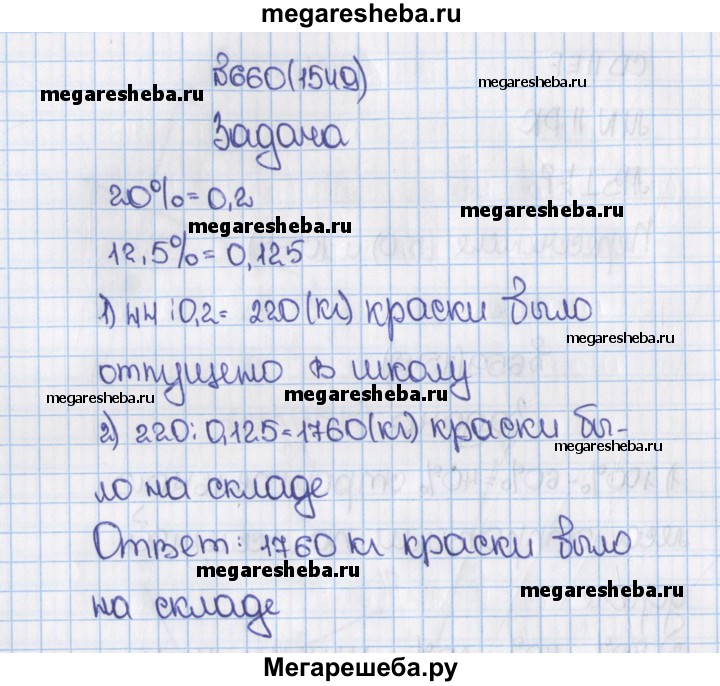 megaresheba.ru
В660(1549)
megaresheba.ru
megaresheba.ru
Задача
20%=0,2
megaresheba.ru
megaresheba.ru
12,5%=0,125
1) 44:0,2= 220(кг) краски было
megaresheba.ru
отпущено в школу
megaresheba.ru
megaresheba.ru
2) 220:0,125=1760(кг) краски бы-
megaresheba.ru
ло на складе
Ответ: 1760 кг краски было
megaresheba.ru
megaresheba.ru
на складе
Мегарешеба.ру